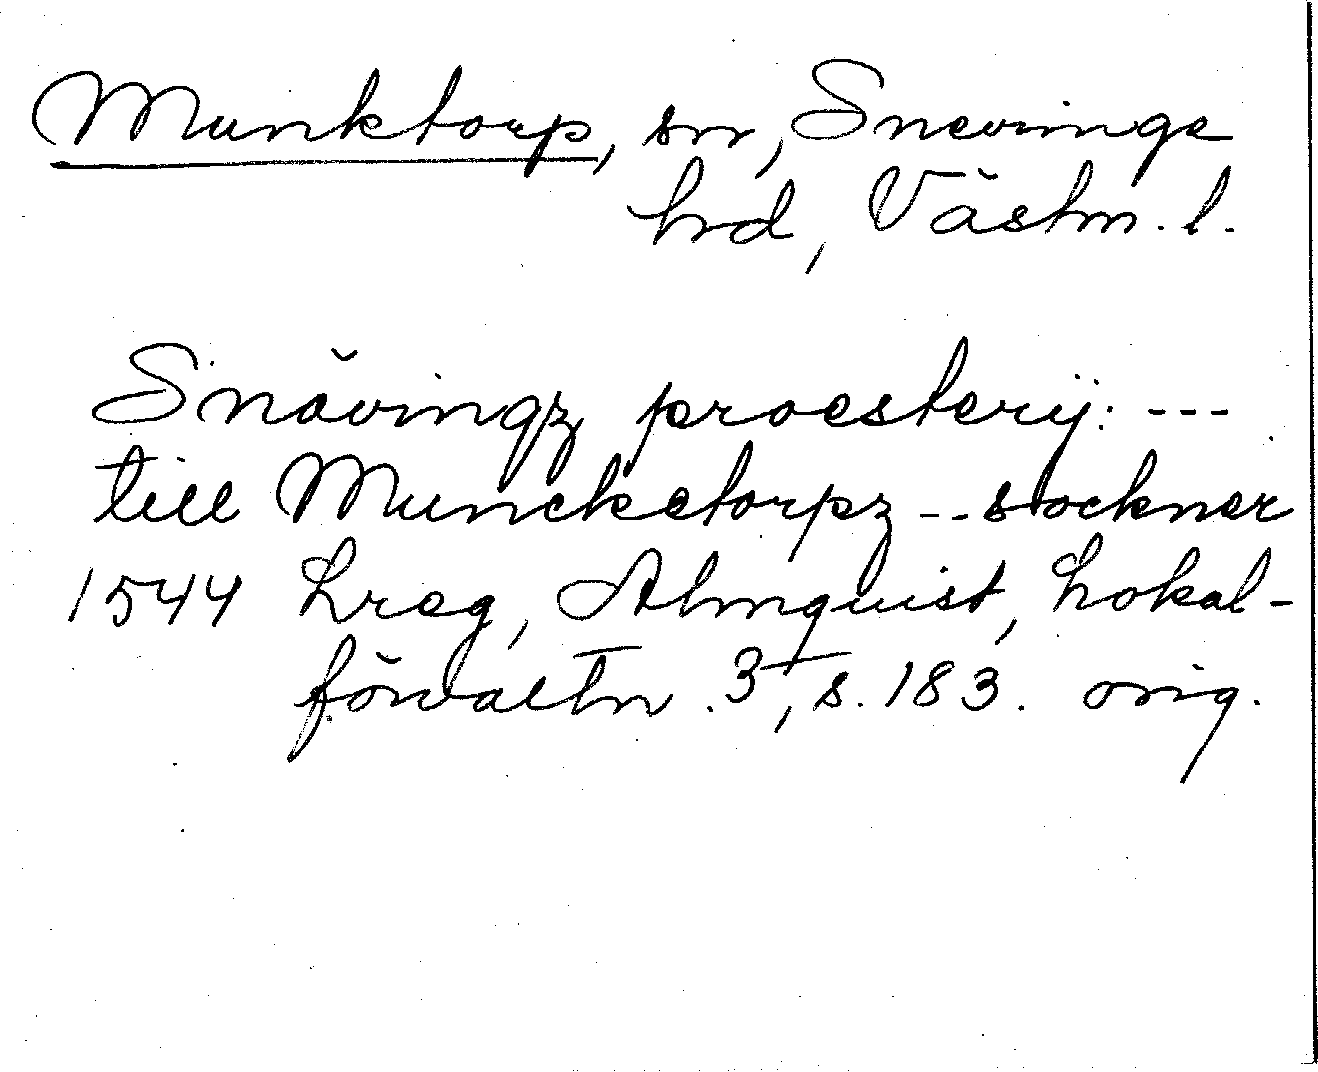 Munktorp, sn, Snevringe
hrd, Västm. l.
Snävingz proesterij: ---
till Munckctorpz -- sockner
1544 Lreg, Almquist, Lokal-
förvaltn. 3, s. 183. orig.